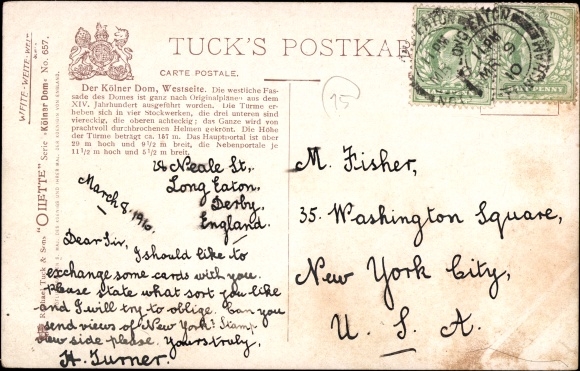 TUCK'S POSTKAR
CARTE POSTALE.
Der Kölner Dom, Westseite. Die westliche Fas-
sade des Domes ist ganz nach Originalplänen aus dem
XIV. Jahrhundert ausgeführt worden. Die Türme er-
heben sich in vier Stockwerken, die drei unteren sind
viereckig, die oberen achteckig; das Ganze wird von
prachtvoll durchbrochenen Helmen gekrönt. Die Höhe
der Türme beträgt ca. 157 m. Das Hauptportal ist über
29 m hoch und 9½ m breit, die Nebenportale je
11½ m hoch und 5½ m breit.
Raphael Tuck & Sons "OILETTE" Serie «Kölner Dom» No. 657.
75
Neale St,
Long Eaton,
Derby,
England.
March 8, 1910.
Dear Sir,
I should like to
exchange some cards with you.
Please state what sort you like
and I will try to oblige. Can you
send views of New York? Stamp
view side please. Yours truly,
H. Turner.
M. Fisher,
35. Washington Square,
New York City,
U. S. A.
LONG EATON